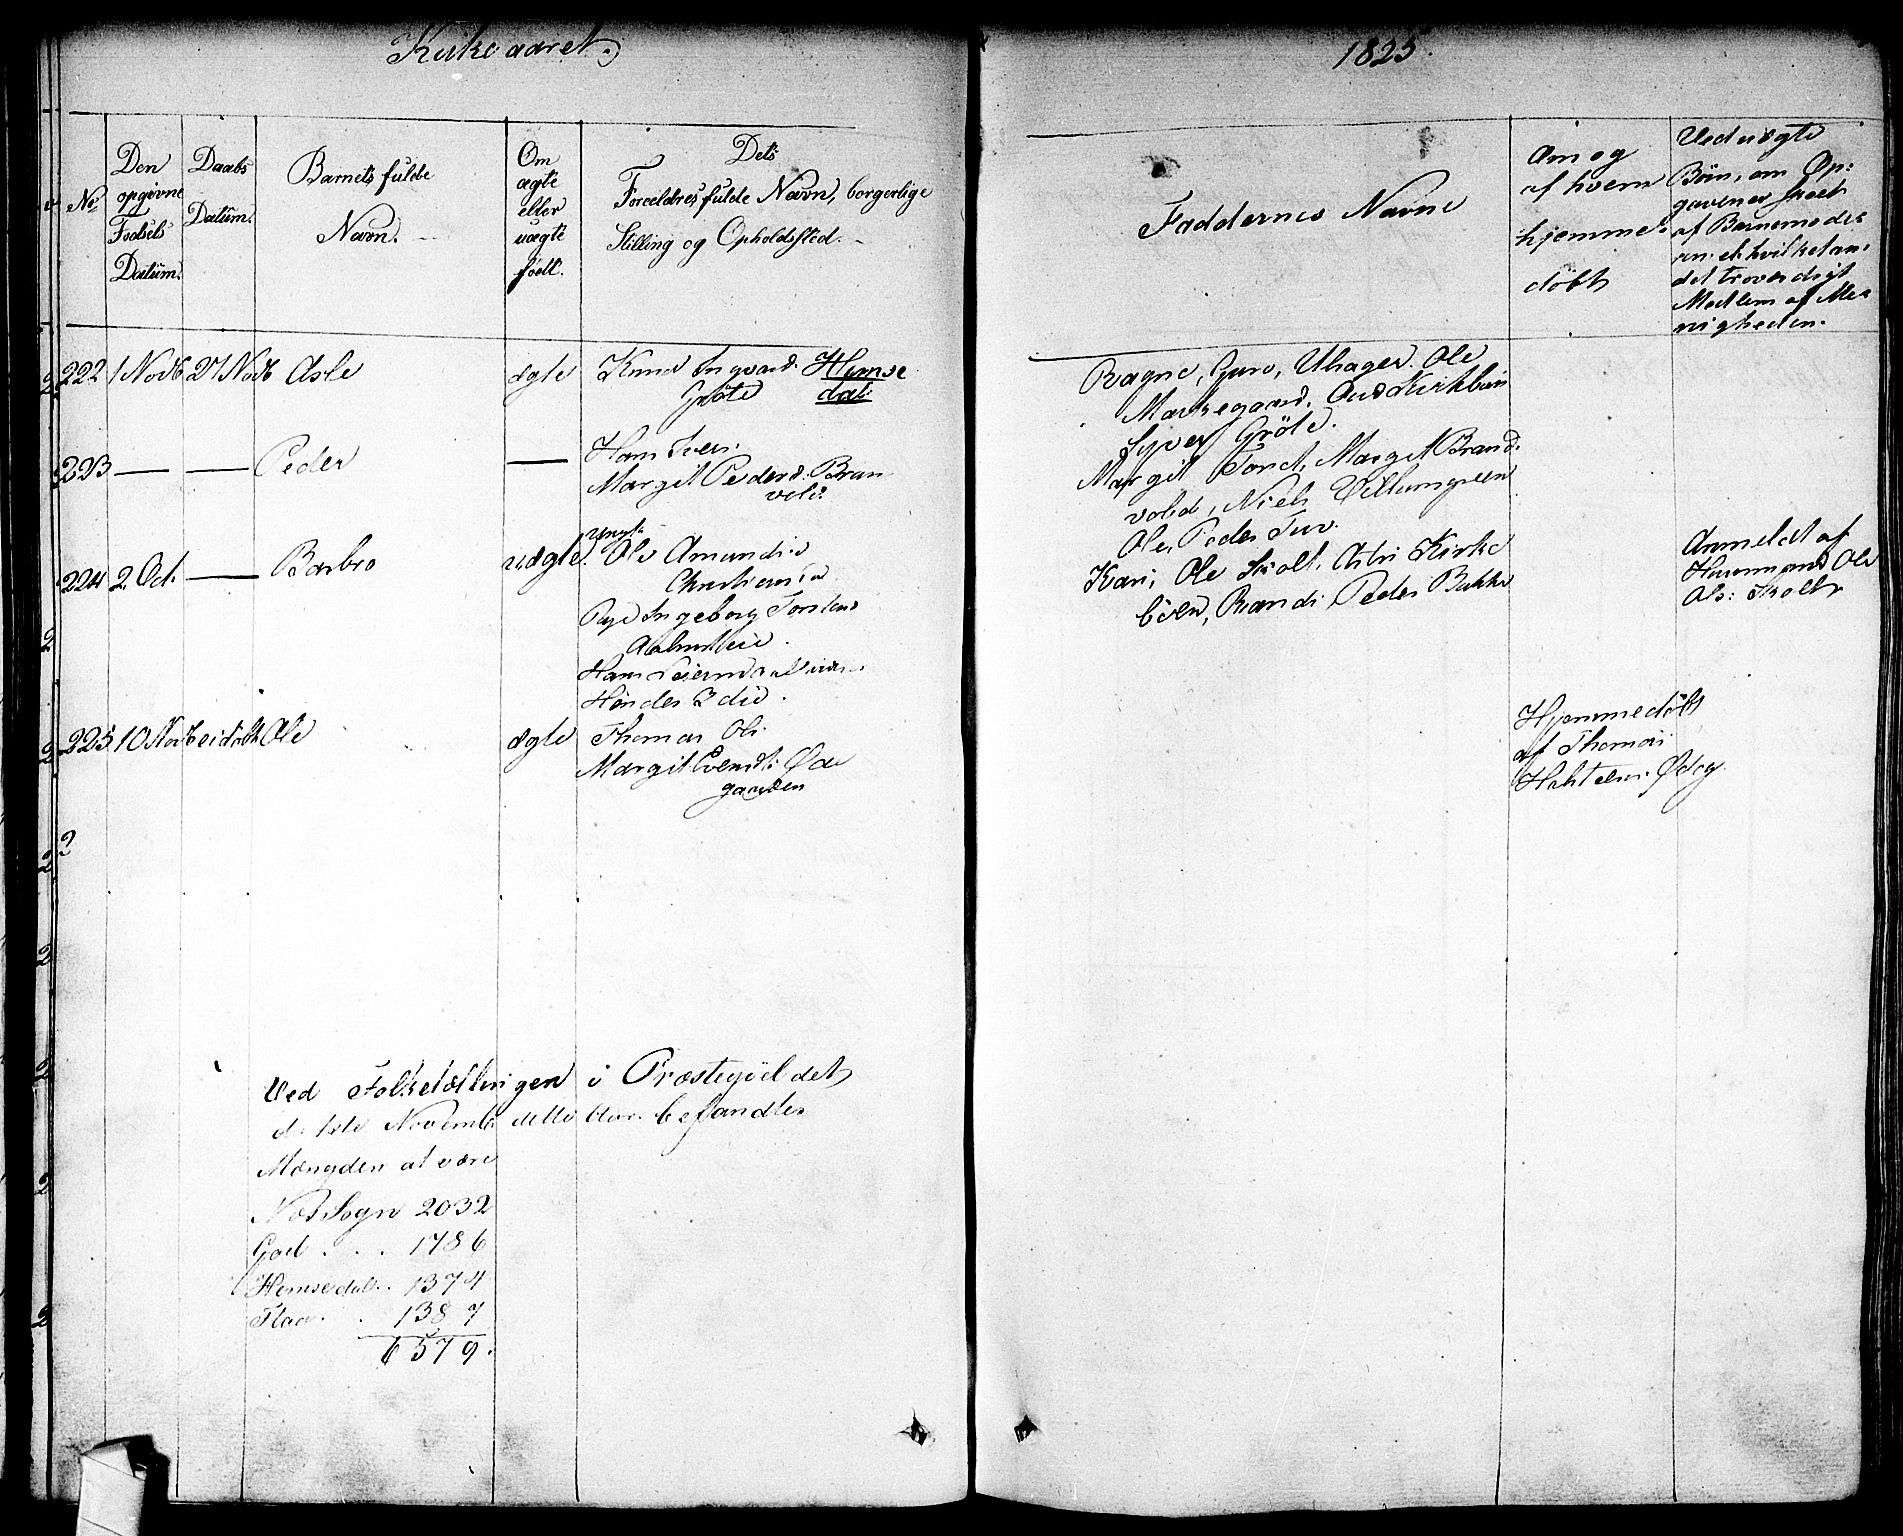 Kirkeaaret.
1825.
No
Den
opgivne
Fødsels
Datum.
Daabs
Datum.
Barnets fulde
Navn.
Om
ægte
eller
uægte
født.
Dets
Forældres fulde Navn, borgerlige
Stilling og Opholdssted.
Faddernes Navne
Om og
af hvem
hjemme-
døbt
Ved uægte
Børn, om Op:
gaven er skeet
af Barnemode
ren el: hvilket an-
det troværdigt
Medlem af Me-
nigheden.
222 1 Novb 27 Novb Asle ægte Knud Ingvard. Hemse
Grøte dal:
Ragne, Guro, Ulsager. Ole
Markegaard. Aud Kirkbøen
Syver Grøte.
223 — — Peder — Hans Iver:
Margit Pedersd. Bran
vold:
Margit Tord, Margit Brand-
vold, Niels Villumgreen
Ole, Peder Tuv.
224 2 Oct. — Barbro uægte. Ungk:
Ole Amunds:
Christiania
Pige Ingeborg Torstens
Hans Leierm:
Hendes 2die.
Kari, Ole Skolt, Astri Kirke
bøen, Randi, Peder Bakke
Anmeldt af
Huusmand Ole
Ols: Skolt
225 10 Novb ei døbt Ole ægte Thomas Ols:
Margit Svends: Øde
gaarden
Hjemmedøbt
af Thomas
Ødeg.
Ved Folketællingen i Præstegieldet
d: 1ste Novemb: dette Aar befandtes
Mængden at være
Næs Sogn 2032
Goel . . . 1786
Hemsedal . . 1374
Flaa . . 1387
6579.